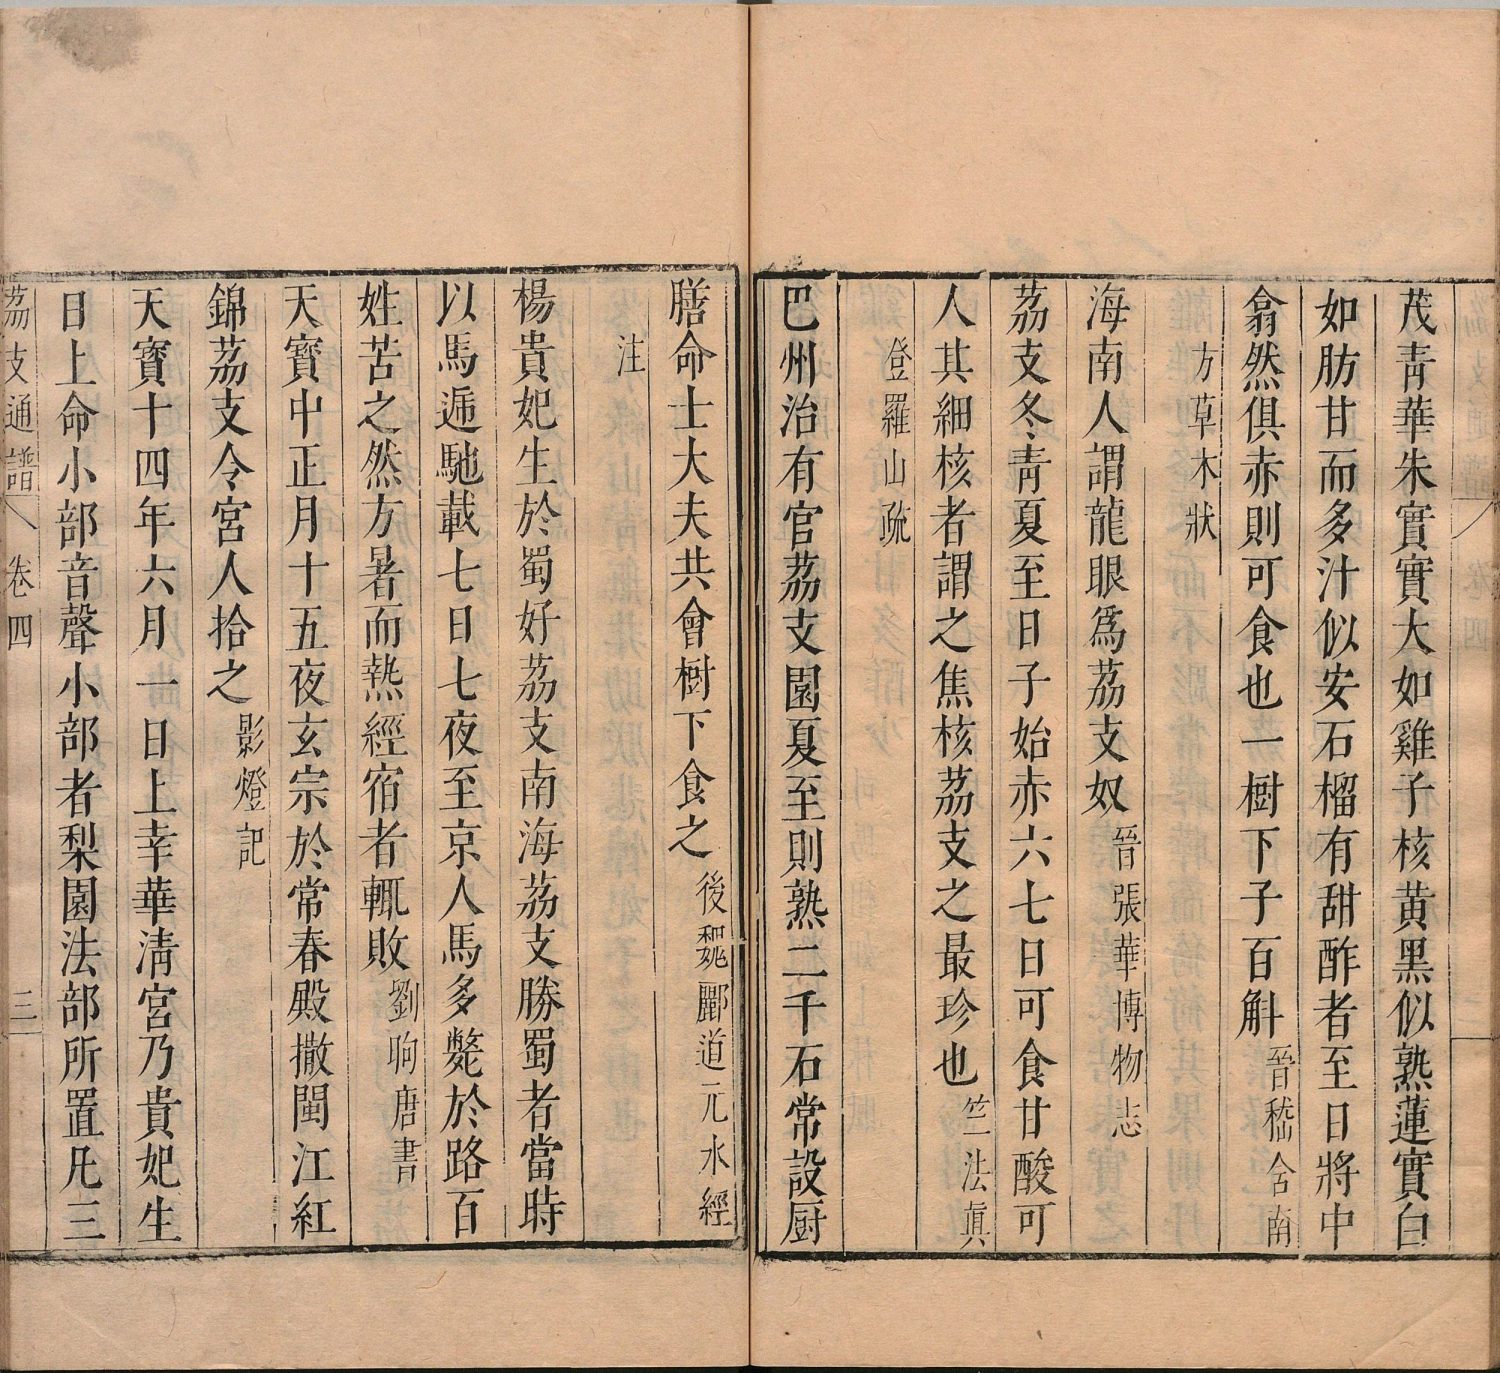 茂青華朱實實大如雞子核黃黑似熟蓮實白
如肪甘而多汁似安石榴有甜酢者至日將中
翕然俱赤則可食也一樹下子百斛晉嵇含南
方草木狀
海南人謂龍眼爲荔支奴晉張華博物志
荔支冬青夏至日子始赤六七日可食甘酸可
人其細核者謂之焦核荔支之最珍也竺法眞
登羅山疏
巴州治有官荔支園夏至則熟二千石常設厨
膳命士大夫共會樹下食之後魏酈道元水經
注
楊貴妃生於蜀好荔支南海荔支勝蜀者當時
以馬遞馳載七日七夜至京人馬多斃於路百
姓苦之然方暑而熱經宿者輒敗劉昫唐書
天寶中正月十五夜玄宗於常春殿撒閩江紅
錦荔支令宮人拾之影燈記
天寶十四年六月一日上幸華清宮乃貴妃生
日上命小部音聲小部者梨園法部所置凡三
荔支通譜 卷四 三